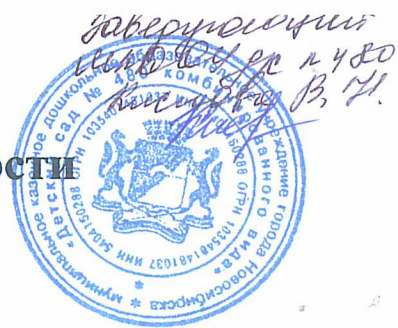 Заведующий
МКДОУ д/с № 480
В. Н.
ости
муниципальное казенное дошкольное образовательное учреждение города Новосибирска *
«Детский сад № 480 комбинированного вида»
ОГРН 1035401481037 ИНН 5404150288